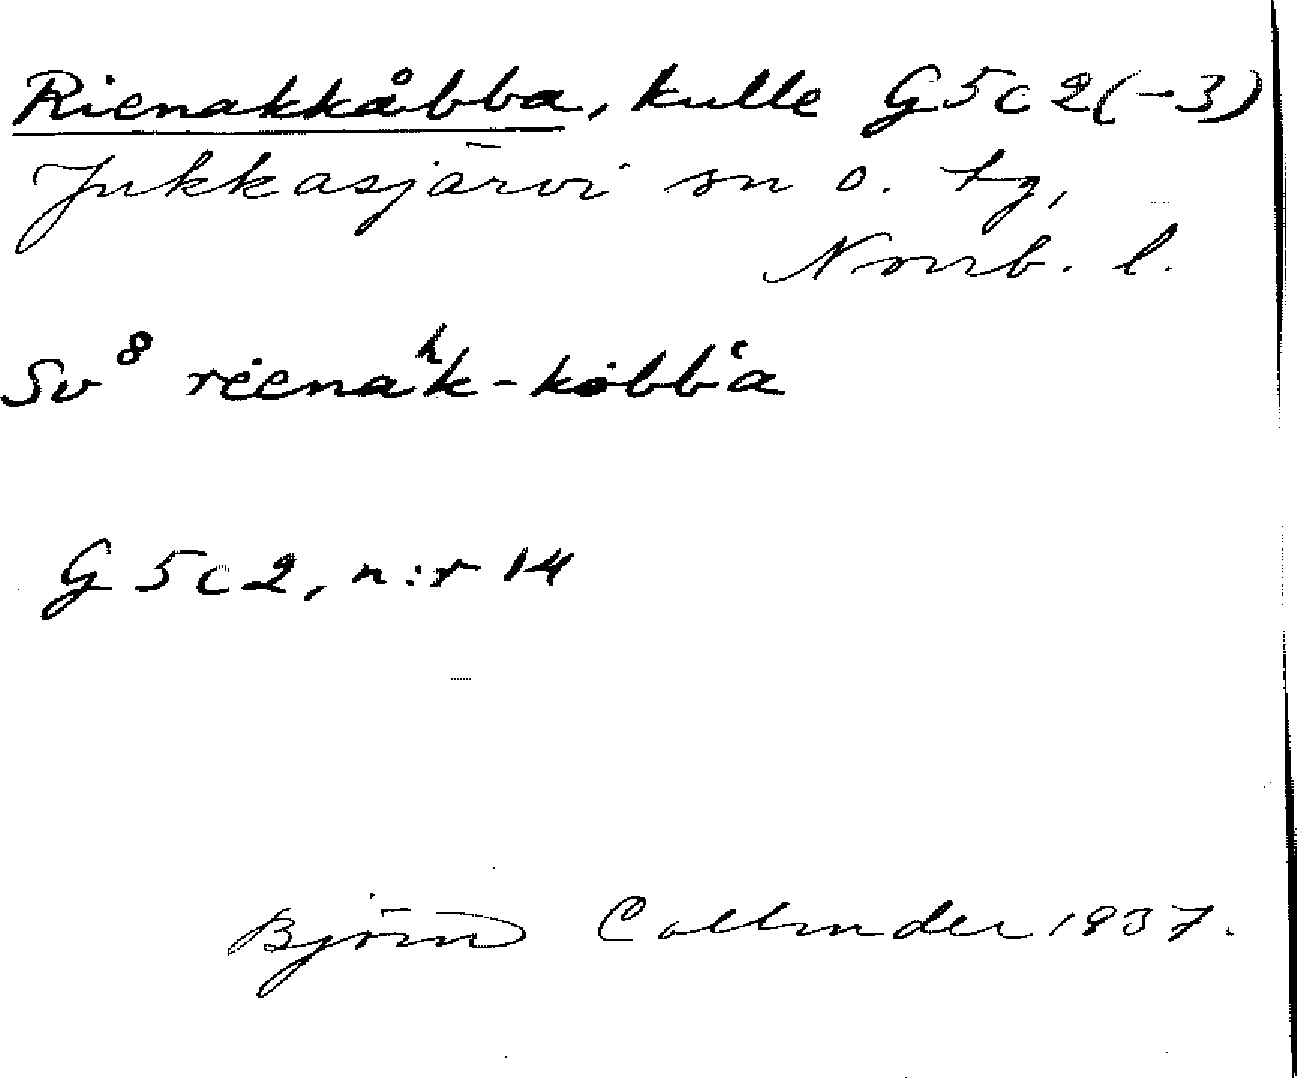 Rienakkåbba, kulle G5c2(-3)
Jukkasjärvi sn o. tg,
Norrb. l.
Sv⁸ rı̇ena ͪk-kȯbb‛a
G 5c2, n:r 14
Björn Collinder 1937.